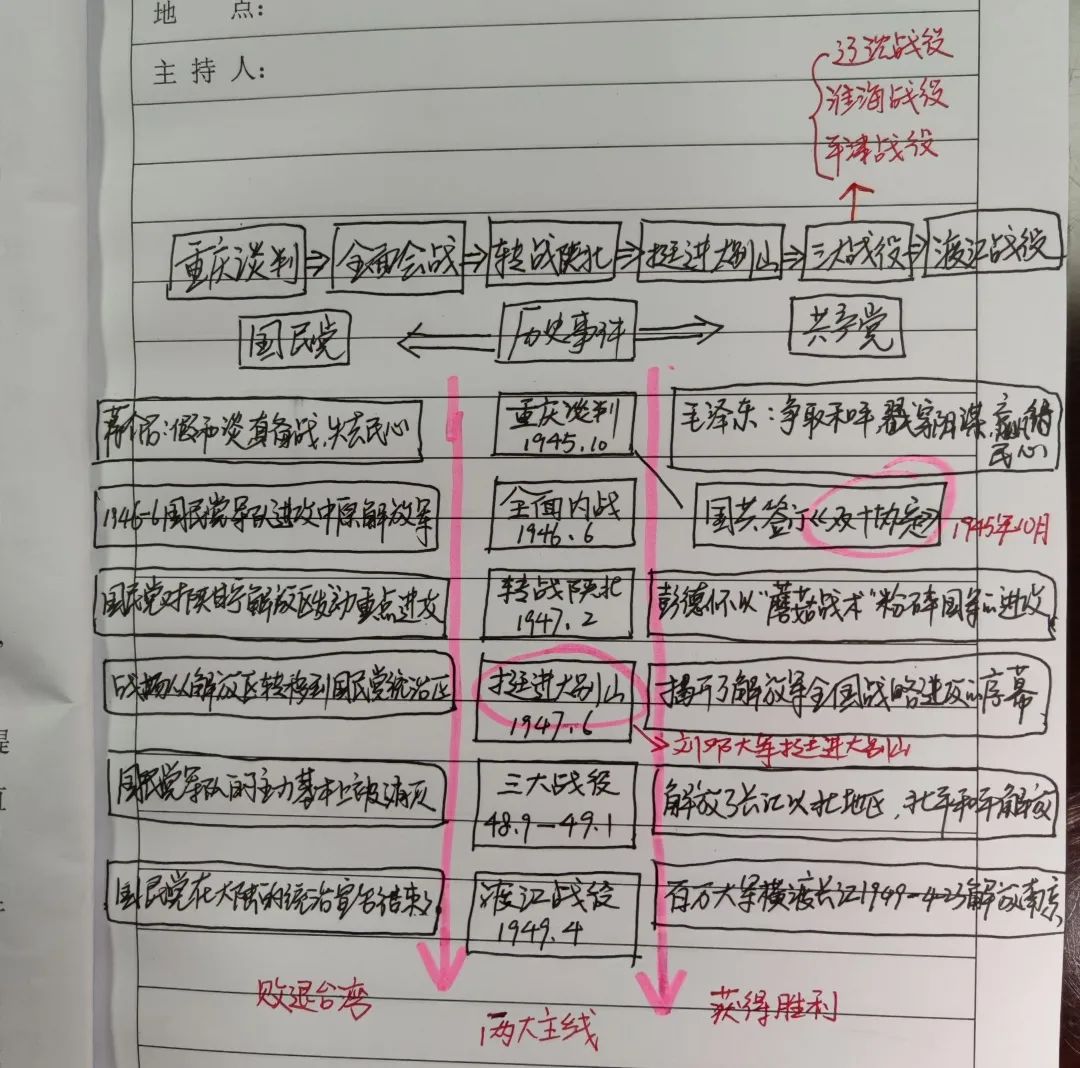 地 点:
主 持 人:
辽沈战役
淮海战役
平津战役
重庆谈判⇒全面会战⇒转战陕北⇒挺进大别山⇒三大战役⇒渡江战役
国民党 历史事件 共产党
蒋介石:假和谈真备战,失去民心
重庆谈判
1945.10
毛泽东:争取和平,揭穿阴谋,赢得
民心
1946-6国民党军队进攻中原解放军
全面内战
1946.6
国共签订《双十协定》 1945年10月
国民党对陕甘宁解放区发动重点进攻
转战陕北
1947.2
彭德怀以"蘑菇战术"粉碎国军的进攻
战场从解放区转移到国民党统治区
挺进大别山
1947.6
揭开了解放军全国战略进攻的序幕
刘邓大军挺进大别山
国民党军队的主力基本上被消灭
三大战役
48.9—49.1
解放了长江以北地区,北平和平解放
国民党在大陆的统治宣告结束了
渡江战役
1949.4
百万大军横渡长江1949-4-23解放南京
败退台湾
两大主线
获得胜利